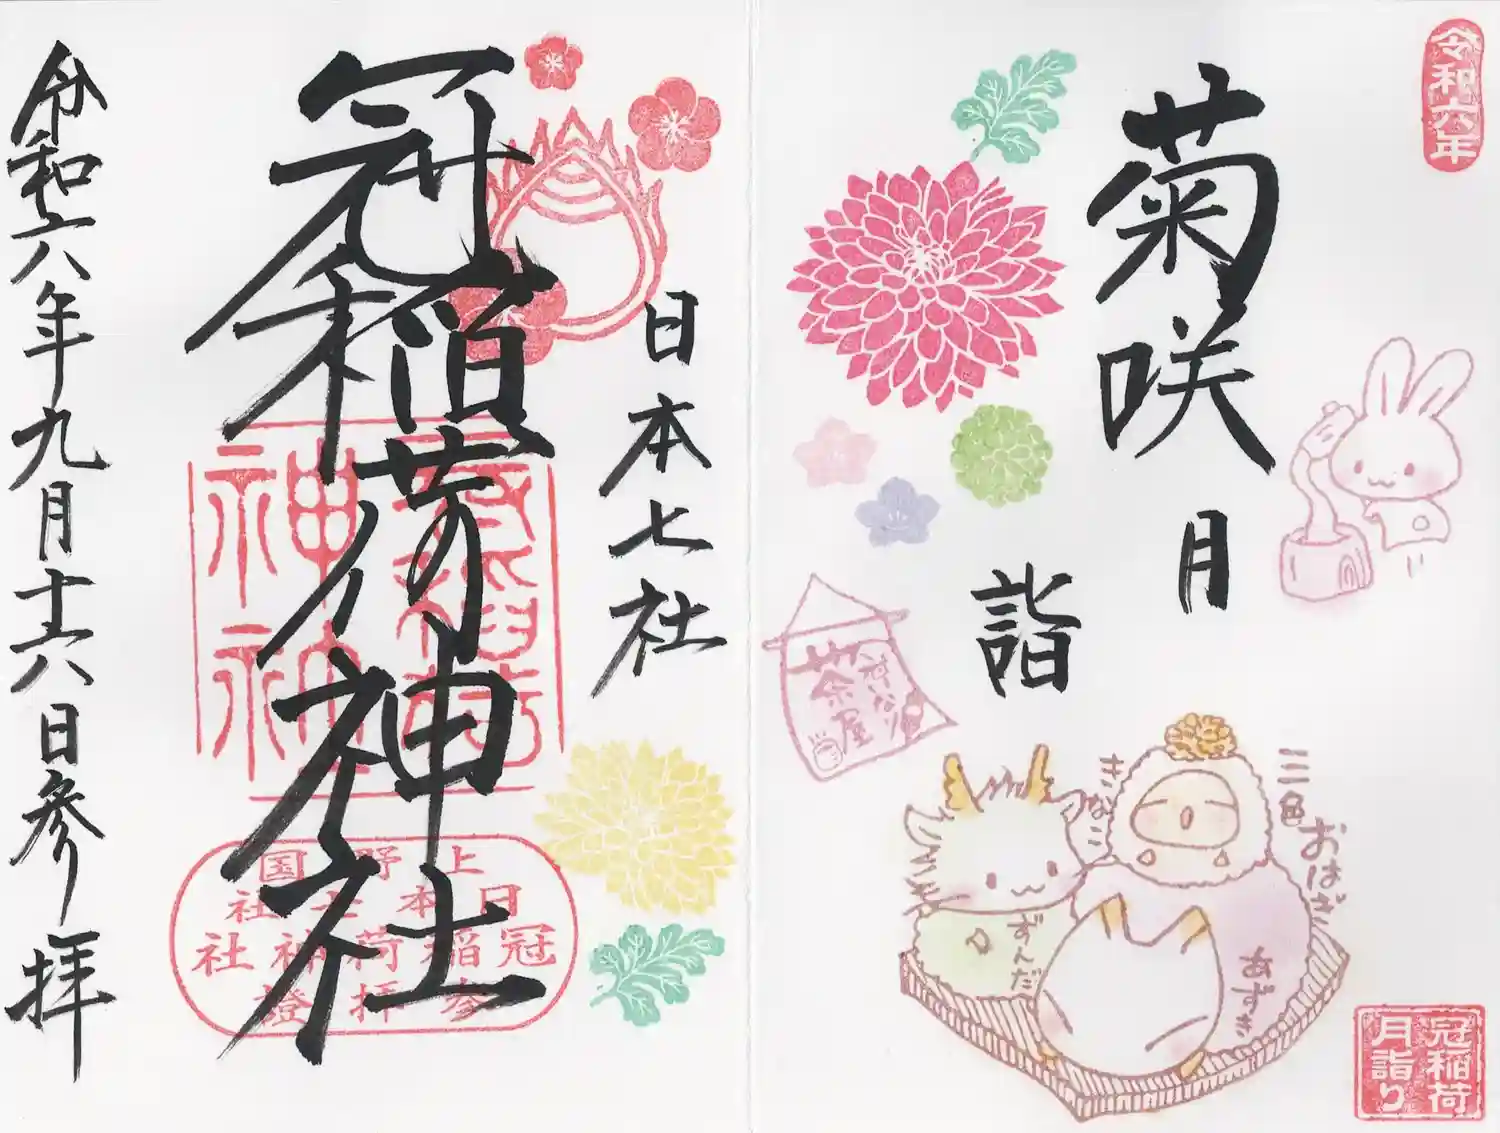 令和六年
菊咲月
詣
冠いなり
茶屋
三色おはぎ
きなこ
ずんだ
あずき
冠稲荷
月詣り
日本七社
冠稲荷神社
上野国
日本七社
冠稲荷神社
参拝證
令和六年九月十六日参拝